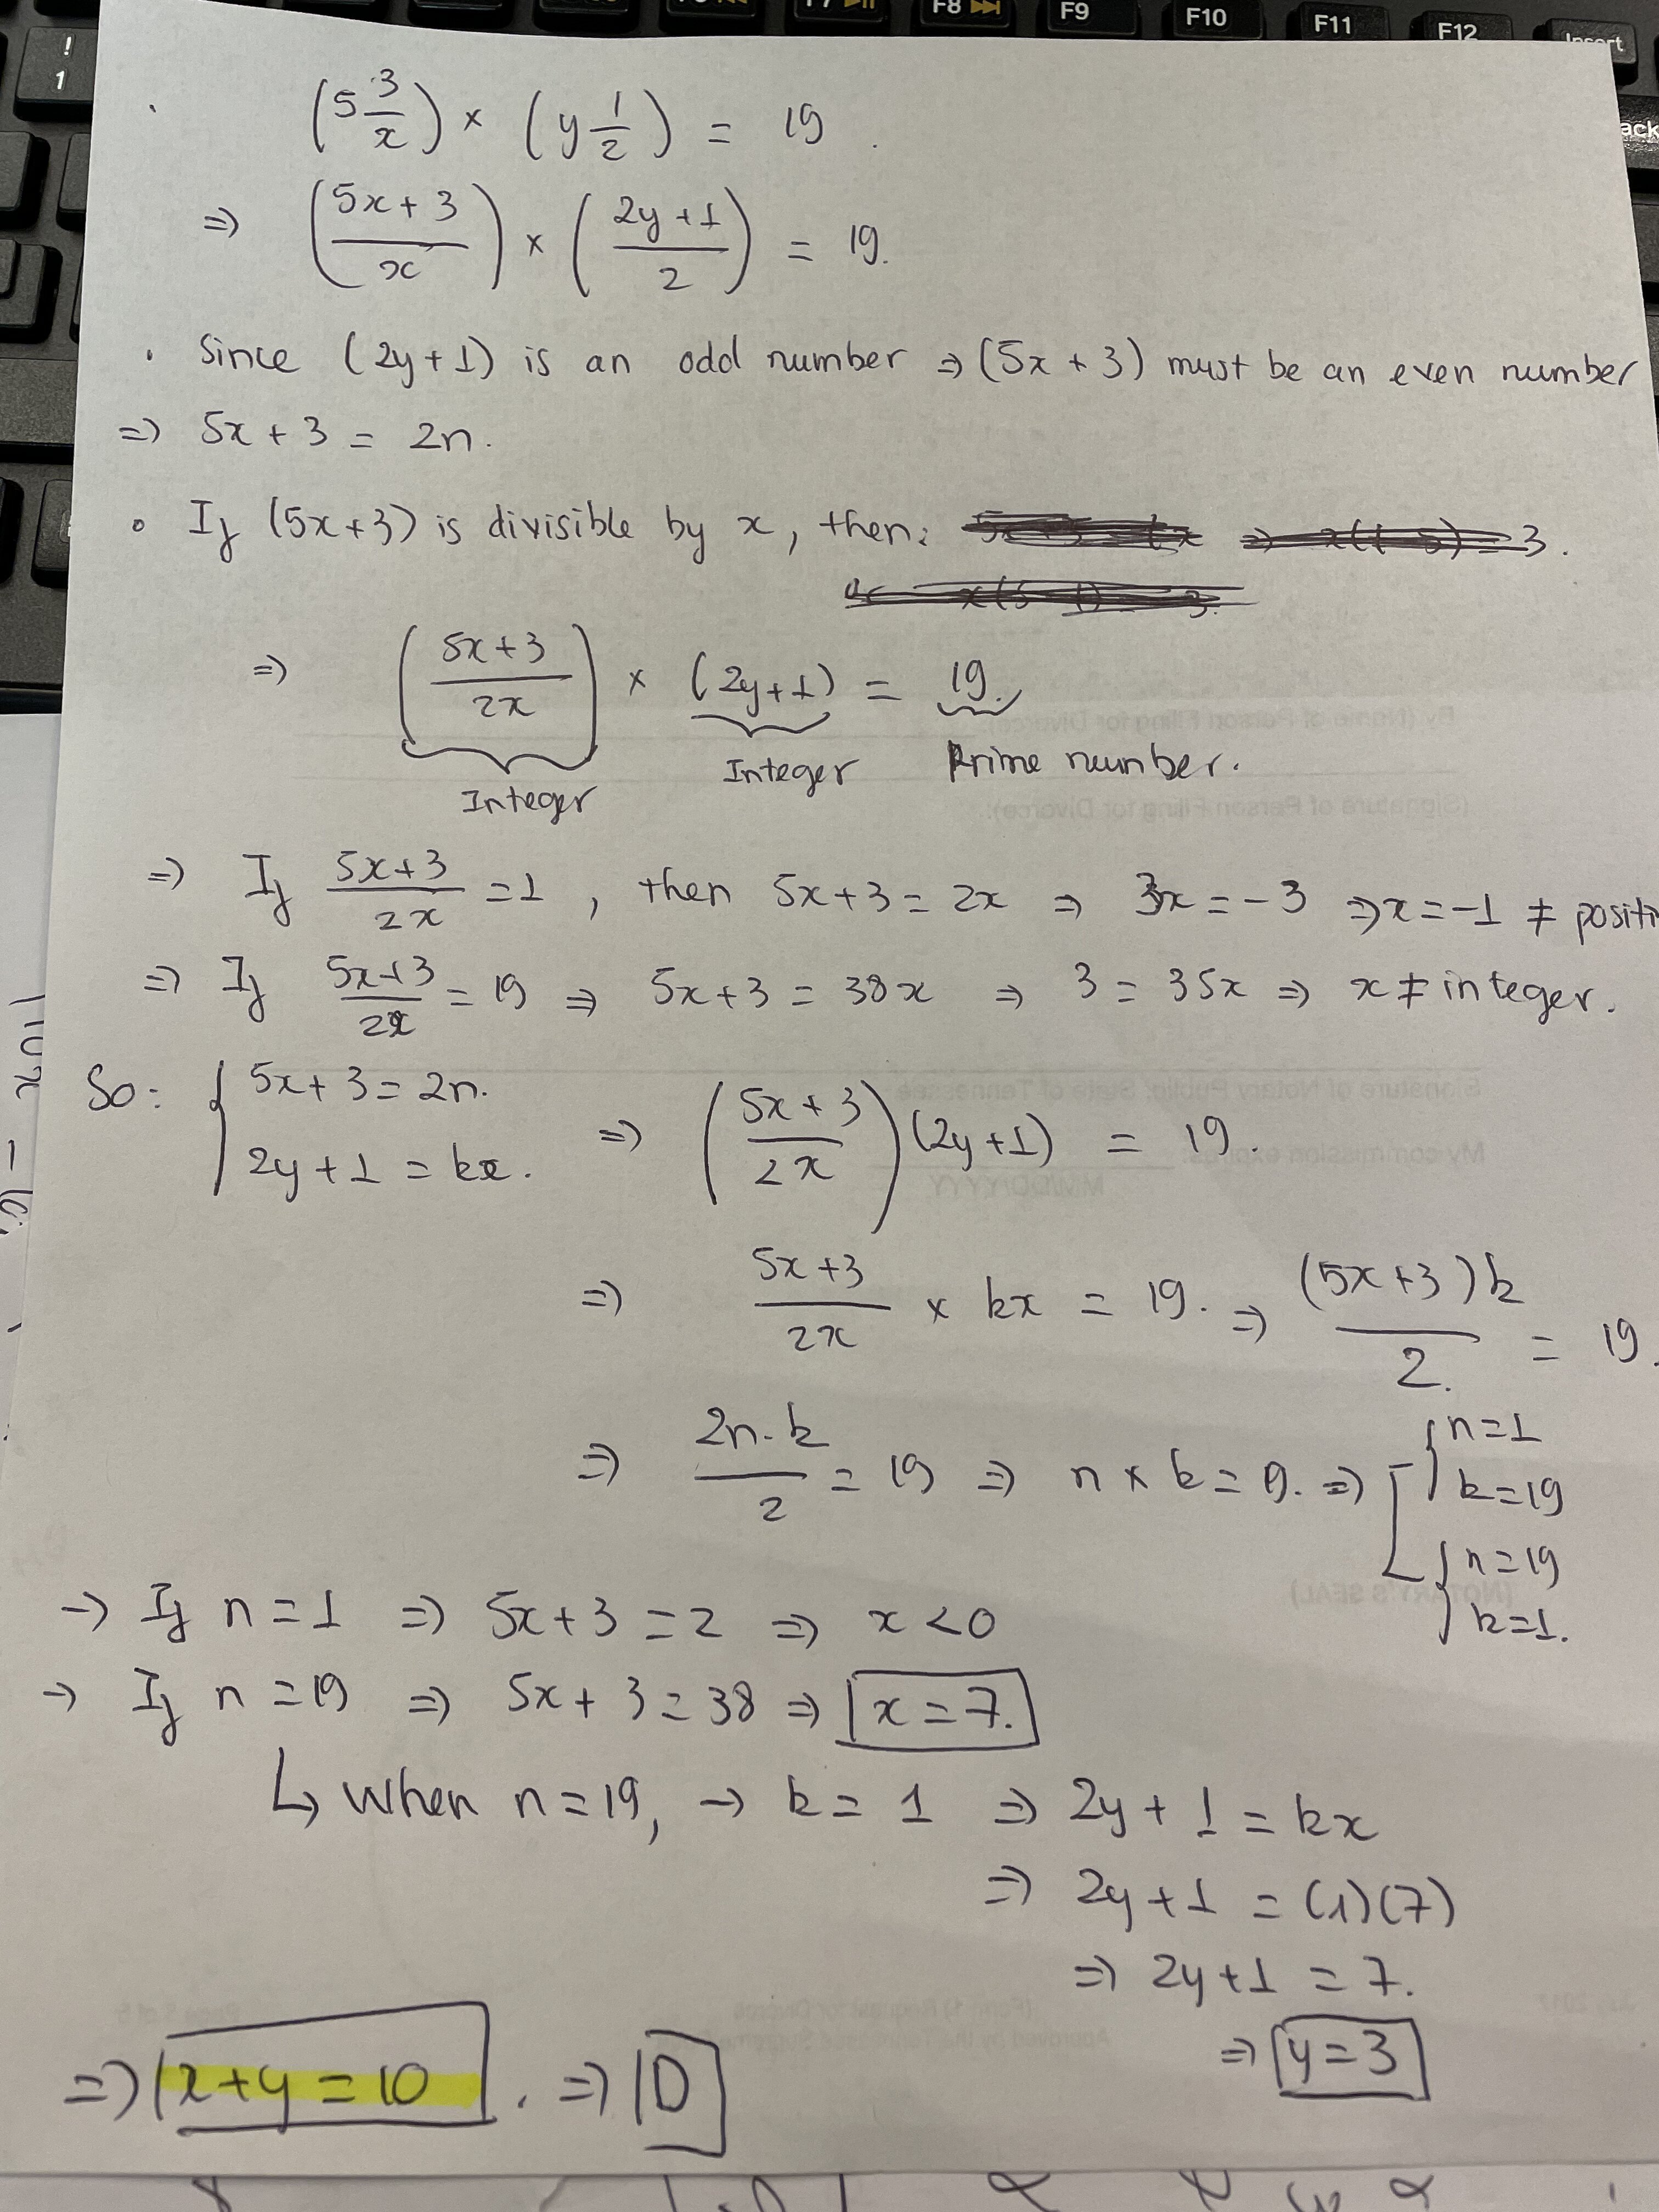 F7 F8 F9 F10 F11 F12 Insert
! 1
(5 3/x) × (y 1/2) = 19.
⇒ ((5x+3)/x) × ((2y+1)/2) = 19.
• Since (2y+1) is an odd number ⇒ (5x+3) must be an even number
⇒ 5x+3 = 2n.
• If (5x+3) is divisible by x, then:
⇒ ((5x+3)/2x) × (2y+1) = 19.
Integer Integer Prime number.
⇒ If (5x+3)/2x = 1, then 5x+3 = 2x ⇒ 3x = -3 ⇒ x = -1 ≠ positi
⇒ If (5x+3)/2x = 19 ⇒ 5x+3 = 38x ⇒ 3 = 35x ⇒ x ≠ integer.
So: { 5x+3 = 2n. 2y+1 = kx. ⇒ ((5x+3)/2x)(2y+1) = 19.
⇒ (5x+3)/2x × kx = 19. ⇒ (5x+3)k/2. = 19.
⇒ 2n.k/2 = 19 ⇒ n × k = 9. ⇒ [ { n=1 k=19 { n=19 k=1.
→ If n = 1 ⇒ 5x+3 = 2 ⇒ x < 0
→ If n = 19 ⇒ 5x+3 = 38 ⇒ x = 7.
↳ When n = 19, → k = 1 ⇒ 2y+1 = kx
⇒ 2y+1 = (1)(7)
⇒ 2y+1 = 7.
⇒ y = 3
⇒ x+y = 10. ⇒ D